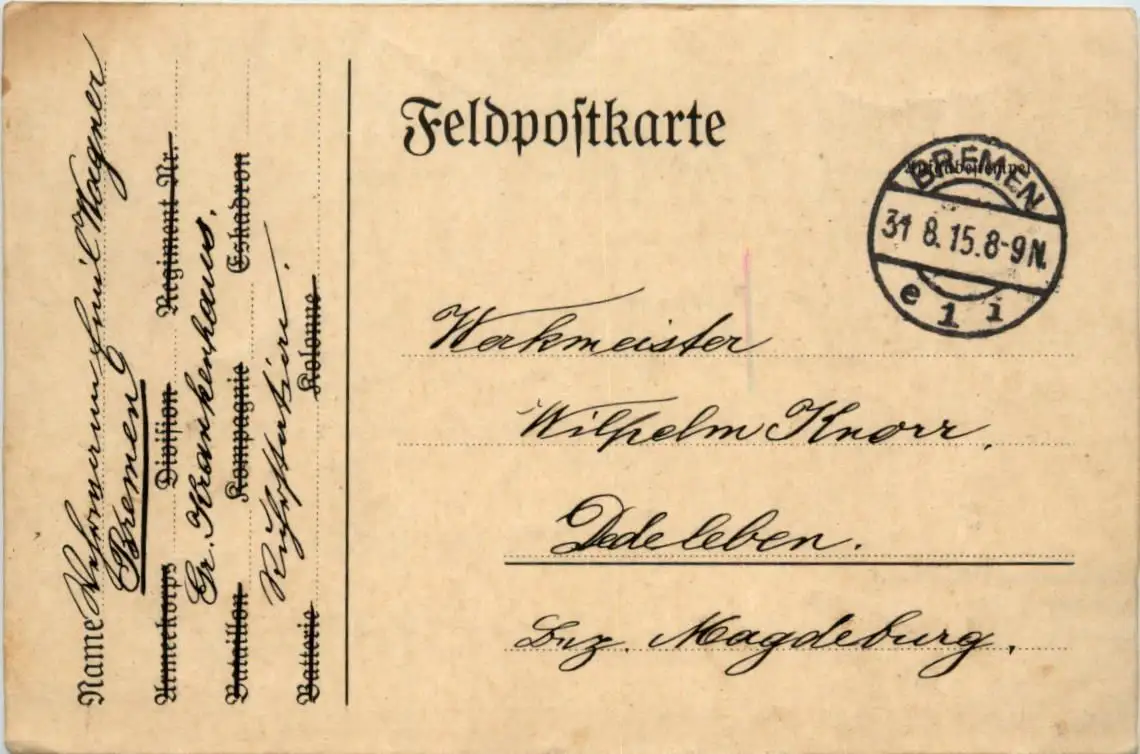 Feldpostkarte
Aufgabestempel
BREMEN
31 8.15.8-9N.
e 1 i
Werkmeister
Wilhelm Knorr,
Dedeleben.
Bez. Magdeburg,
Name Emil Wagner
Bremen
Armeekorps Division Regiment Nr.
Gr. Krankenhaus.
Bataillon Kompagnie Eskadron
Batterie Kolonne